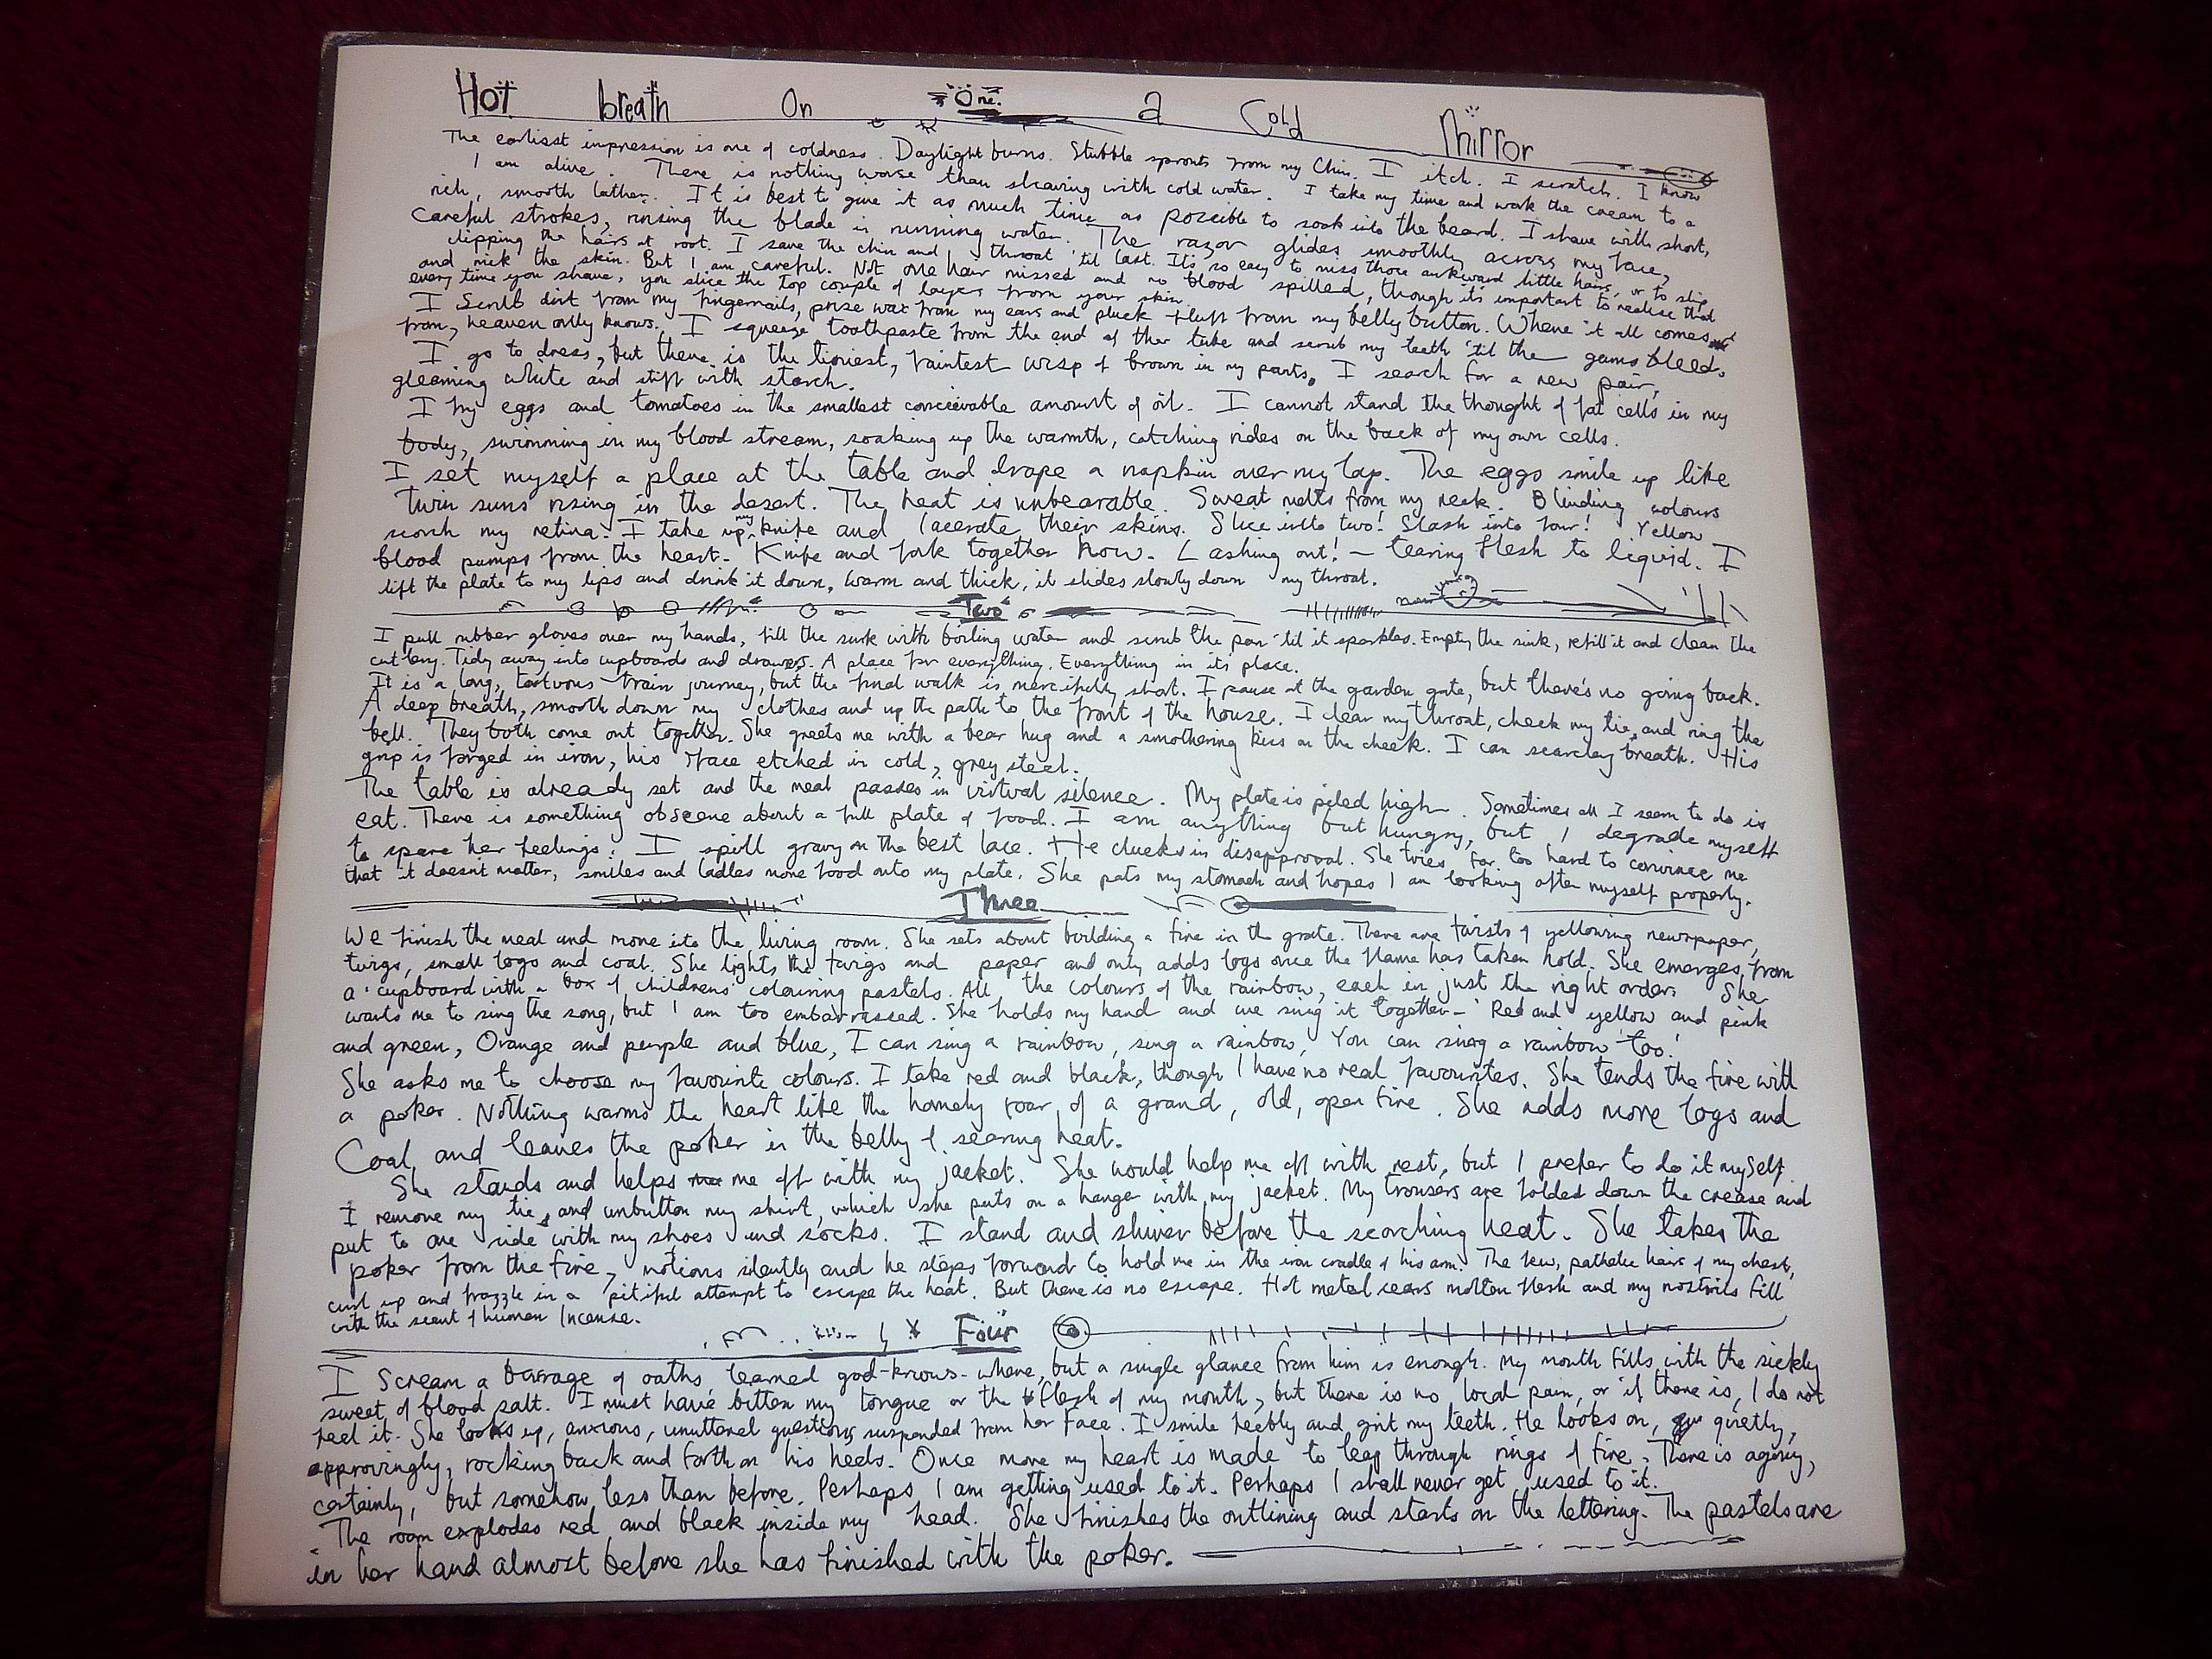 Hot breath On a Cold Mirror
One.
The earliest impression is one of coldness. Daylight burns. Stubble sprouts from my Chin. I itch. I scratch. I know
I am alive. There is nothing worse than shaving with cold water. I take my time and work the cream to a
rich, smooth lather. It is best to give it as much time as possible to soak into the beard. I shave with short,
careful strokes, rinsing the blade in running water. The razor glides smoothly across my face,
clipping the hairs at root. I save the chin and throat 'til last. It's so easy to miss those awkward little hairs, or to slip
and nick the skin. But I am careful. Not one hair missed and no blood spilled, though it's important to realise that
every time you shave, you slice the top couple of layers from your skin.
I Scrub dirt from my fingernails, prise wax from my ears and pluck fluff from my belly button. Where it all comes
from, heaven only knows. I squeeze toothpaste from the end of ther tube and scrub my teeth 'til the gums bleed.
I go to dress, but there is the tiniest, faintest wisp of brown in my pants. I search for a new pair,
gleaming white and stiff with starch.
I fry eggs and tomatoes in the smallest conceivable amount of oil. I cannot stand the thought of fat cells in my
body, swimming in my blood stream, soaking up the warmth, catching rides on the back of my own cells.
I set myself a place at the table and drape a napkin over my lap. The eggs smile up like
twin suns rising in the desert. The heat is unbearable. Sweat melts from my neck. Blinding colours
scorch my retina. I take up my knife and lacerate their skins. Slice into two! Slash into four! Yellow
blood pumps from the heart. Knife and fork together now. Lashing out! - tearing flesh to liquid. I
lift the plate to my lips and drink it down, warm and thick, it slides slowly down my throat.
Two
I pull rubber gloves over my hands, fill the sink with boiling water and scrub the pan 'til it sparkles. Empty the sink, refill it and clean the
cutlery. Tidy away into cupboards and drawers. A place for everything. Everything in it's place.
It is a long, tortuous train journey, but the final walk is mercifully short. I pause at the garden gate, but there's no going back.
A deep breath, smooth down my clothes and up the path to the front of the house. I clear my throat, check my tie, and ring the
bell. They both come out together. She greets me with a bear hug and a smothering kiss on the cheek. I can scarcley breath. His
grip is forged in iron, his face etched in cold, grey steel.
The table is already set and the meal passes in virtual silence. My plate is piled high. Sometimes all I seem to do is
eat. There is something obscene about a full plate of food. I am anything but hungry, but I degrade myself
to spare her feelings. I spill gravy on the best lace. He clucks in disapproval. She tries far too hard to convince me
that it doesn't matter, smiles and ladles more food onto my plate. She pats my stomach and hopes I am looking after myself properly.
Three
We finish the meal and move ito the living room. She sets about building a fire in the grate. There are twists of yellowing newspaper,
twigs, small logs and coal. She lights the twigs and paper and only adds logs once the flame has taken hold. She emerges from
a cupboard with a box of childrens' colouring pastels. All the colours of the rainbow, each in just the right order. She
wants me to sing the song, but I am too embarrassed. She holds my hand and we sing it together - 'Red and yellow and pink
and green, Orange and purple and blue, I can sing a rainbow, sing a rainbow, You can sing a rainbow too.'
She asks me to choose my favourite colours. I take red and black, though I have no real favourites. She tends the fire with
a poker. Nothing warms the heart like the homely roar of a grand, old, open fire. She adds more logs and
Coal, and leaves the poker in the belly of searing heat.
She stands and helps me off with my jacket. She would help me off with rest, but I prefer to do it myself.
I remove my tie, and unbutton my shirt, which she puts on a hanger with my jacket. My trousers are folded down the crease and
put to one side with my shoes and socks. I stand and shiver before the scorching heat. She takes the
poker from the fire, motions silently and he steps forward to hold me in the iron cradle of his arm. The few, pathetic hairs of my chest,
curl up and frazzle in a pitiful attempt to escape the heat. But there is no escape. Hot metal sears molten flesh and my nostrils fill
with the scent of human Incense.
Four
I Scream a barrage of oaths learned god-knows-where, but a single glance from him is enough. My mouth fills with the sickly
sweet of blood salt. I must have bitten my tongue or the flesh of my mouth, but there is no local pain, or if there is, I do not
feel it. She looks up, anxious, unuttered questions suspended from her face. I smile feebly and grit my teeth. He looks on, quietly,
approvingly, rocking back and forth on his heels. Once more my heart is made to leap through rings of fire. There is agony,
certainly, but somehow less than before. Perhaps I am getting used to it. Perhaps I shall never get used to it.
The room explodes red and black inside my head. She finishes the outlining and starts on the lettering. The pastels are
in her hand almost before she has finished with the poker.